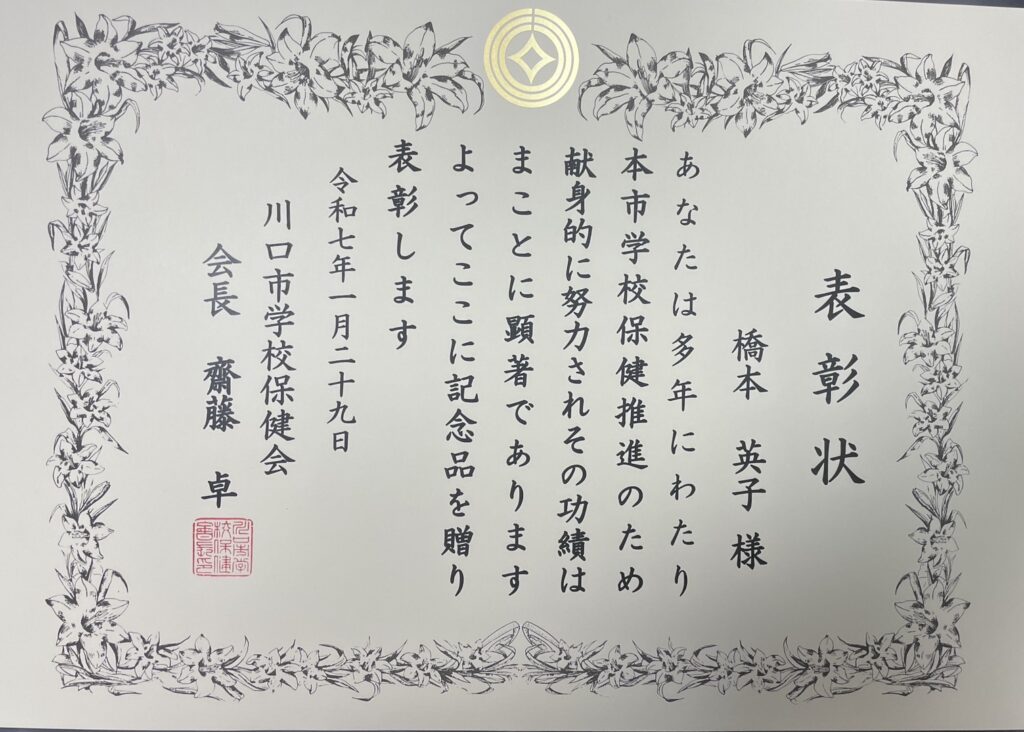 表彰状
橋本 英子 様
あなたは多年にわたり
本市学校保健推進のため
献身的に努力されその功績は
まことに顕著であります
よってここに記念品を贈り
表彰します
令和七年一月二十九日
川口市学校保健会
会長 齋藤 卓